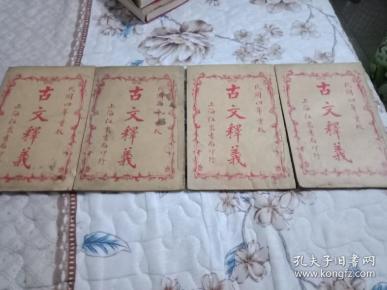 民國四年
古文釋義
上海 書局印行
民國四年
古文釋義
上海 書局印行
古文釋義
上海 書局印行
民國四年
古文釋義
上海 書局印行
孔夫子旧书网
www.kongfz.com